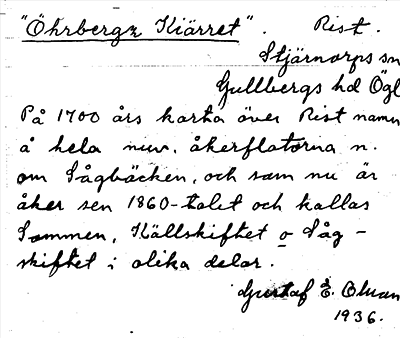 "Öhrbergz Kiärret". Rist.
Stjärnorps sn
Gullbergs hd Ögl
På 1700 års karta över Rist namn
å hela nuv. åkerflatorna n.
om Sågbäcken, och som nu är
åker sen 1860-talet och kallas
Sommen, Källskiftet o Såg-
skiftet i olika delar.
Gustaf E. Olman
1936.